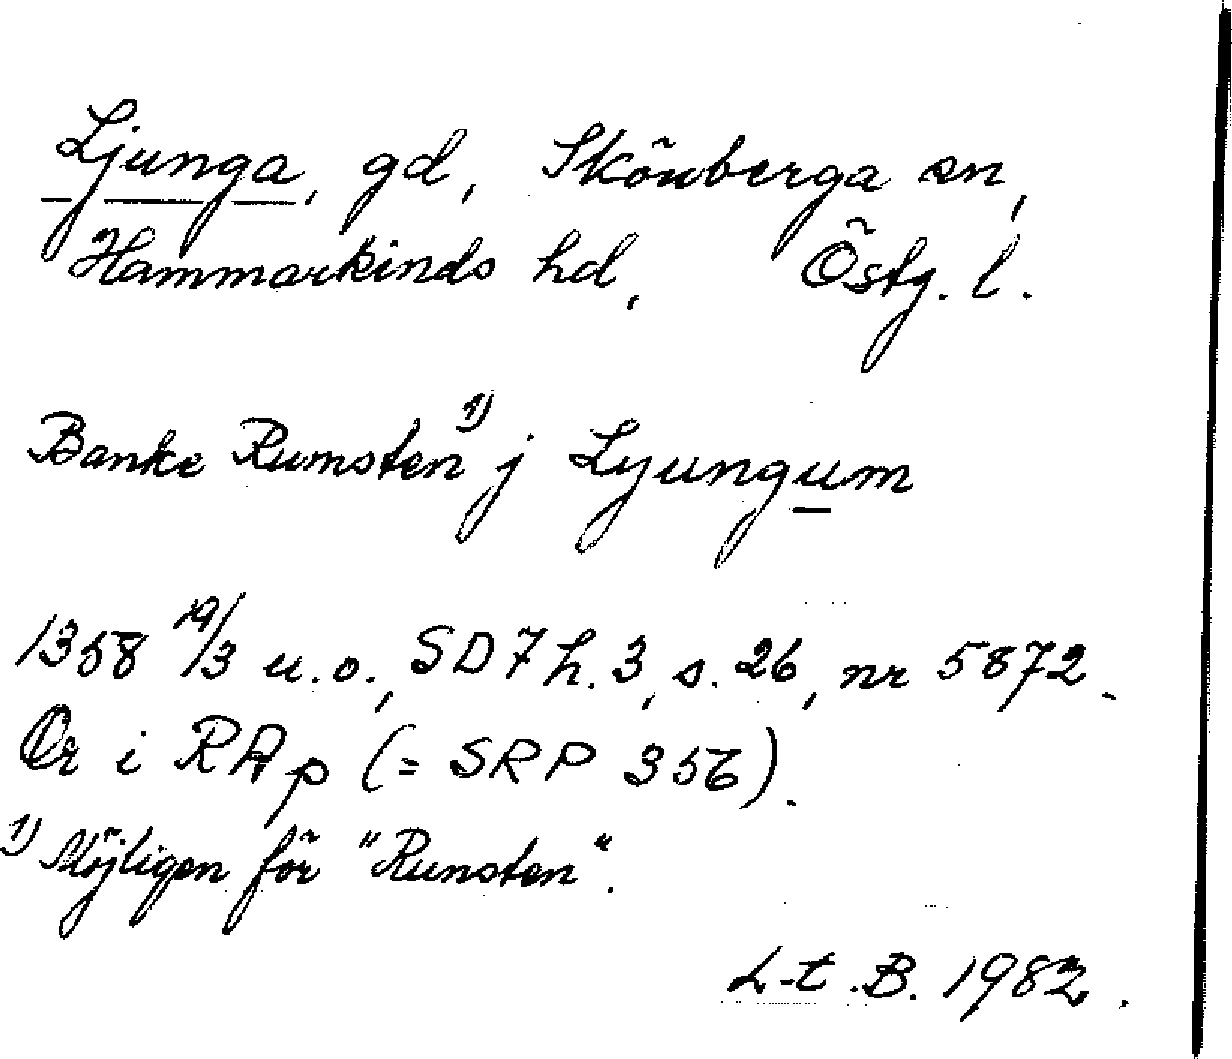 Ljunga, gd, Skönberga sn,
Hammarkinds hd, Östg. l.
Banke Rumsten 1) j Lyungum
1358 19/3 u.o., SD 7 h. 3, s. 26, nr 5872.
Or i RAp (= SRP 356).
1) Möjligen för "Runsten".
L-t .B. 1982.